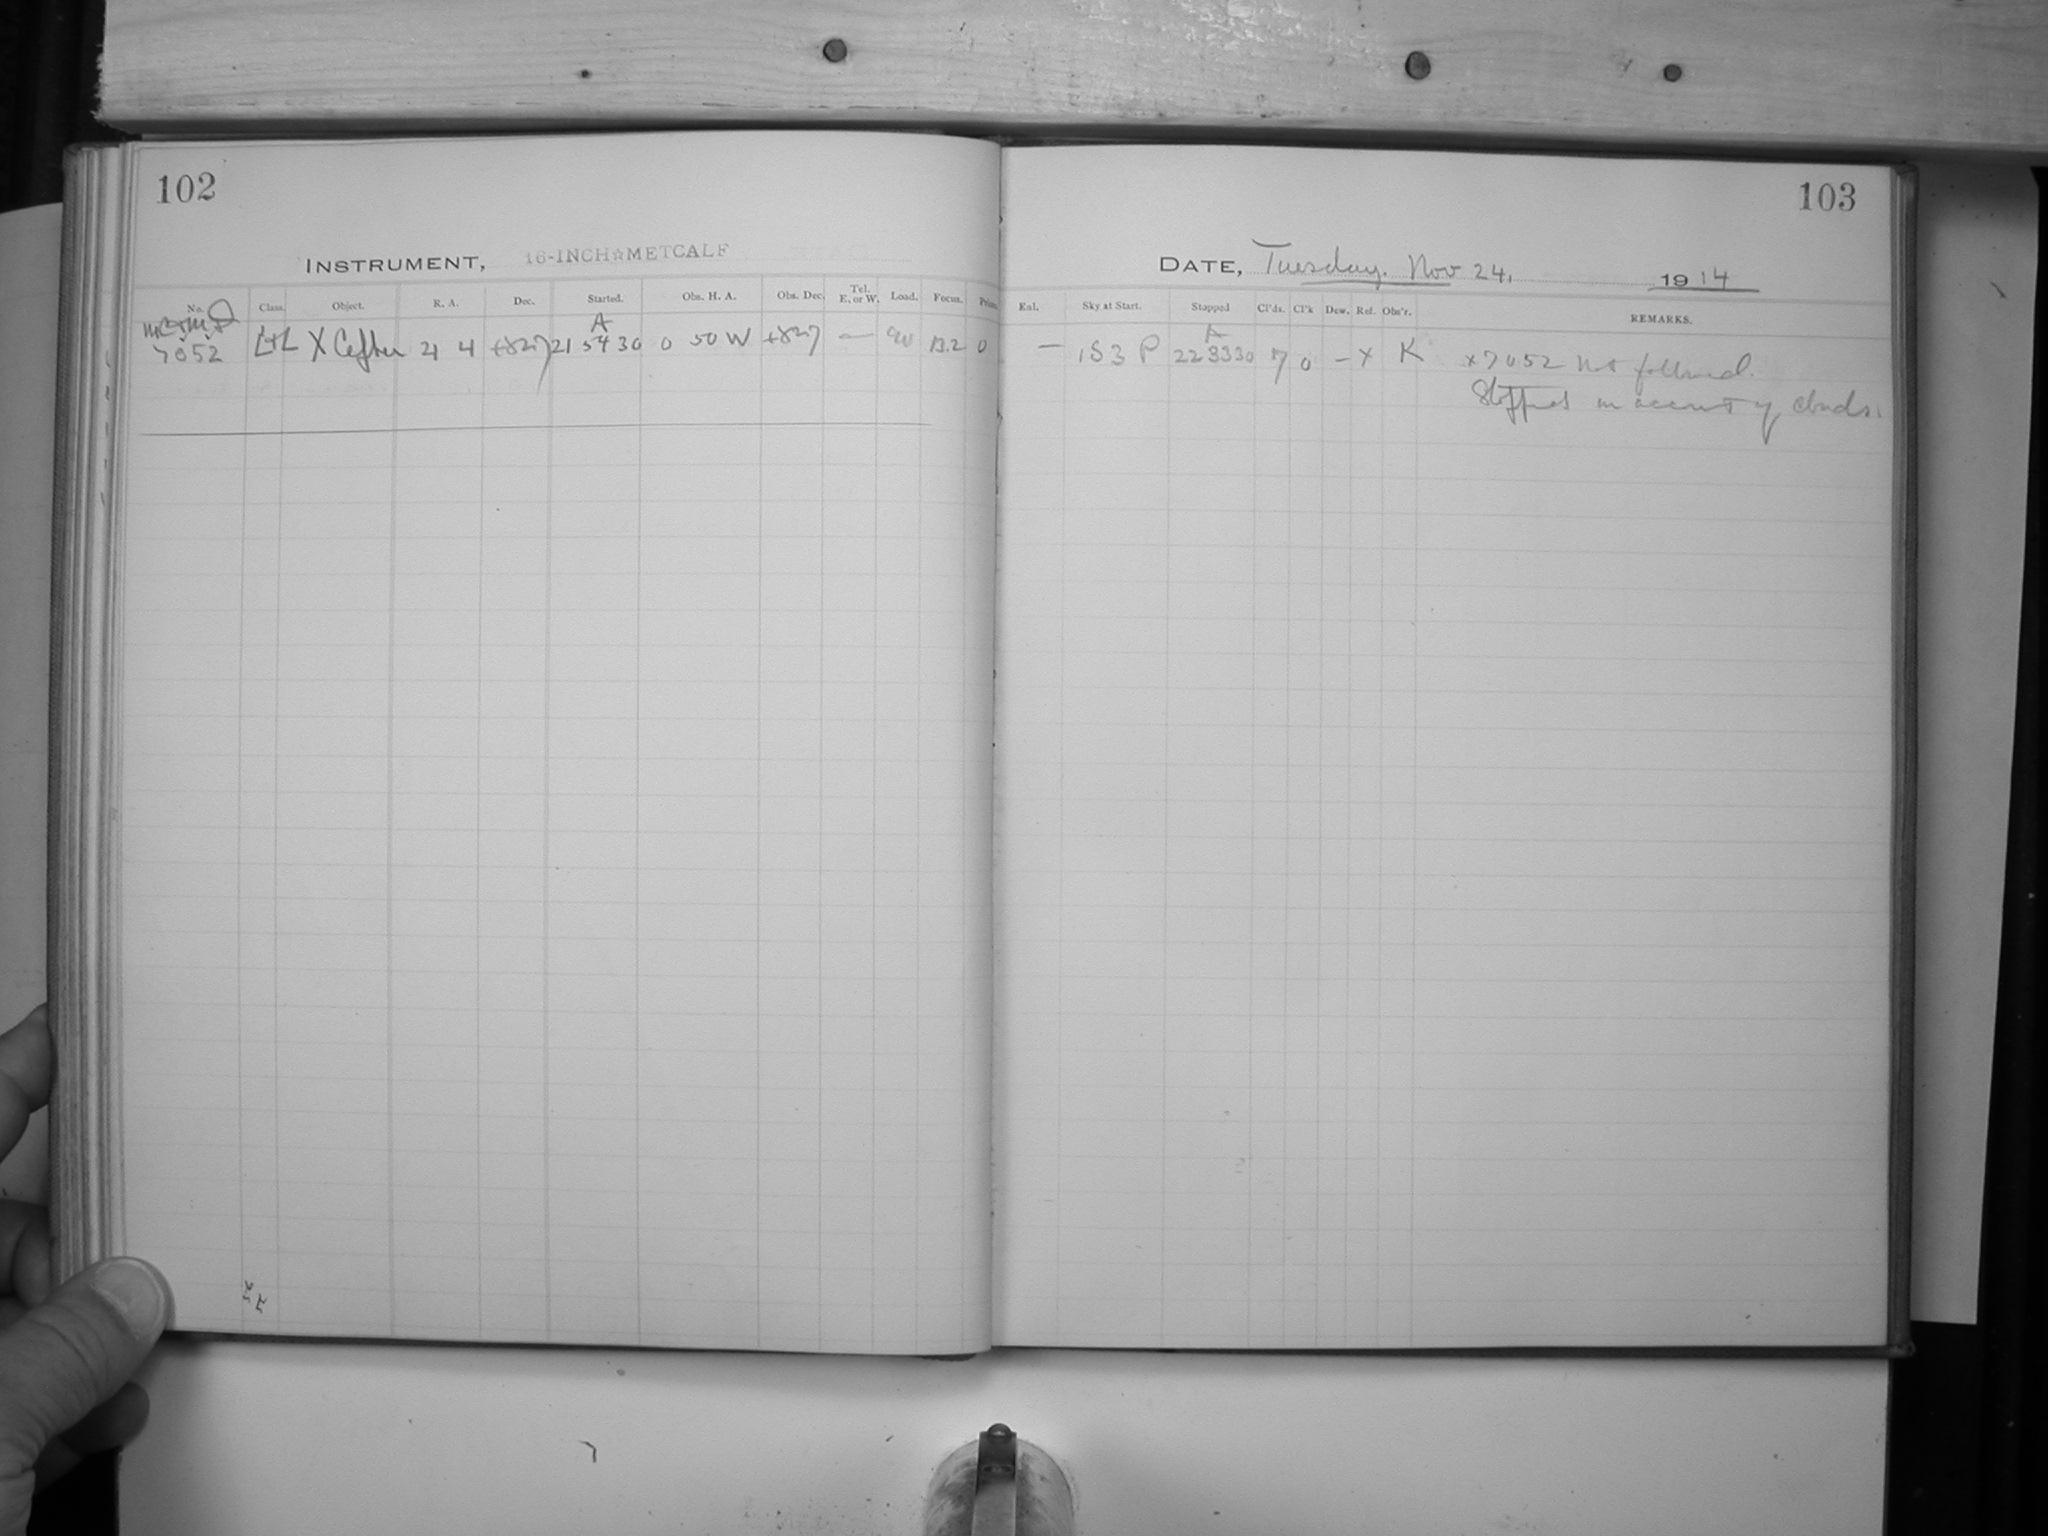 102
INSTRUMENT, 16-INCH☆METCALF
No. Class. Object. R. A. Dec. Started. Obs. H. A. Obs. Dec. Tel. E. or W. Load. Focus. Prism
A
7052 X 21 4 +827 21 54 30 0 50 W +827 — 13.2 0
103
DATE, Tuesday. Nov 24, 1914
Enl. Sky at Start. Stopped Cl'ds. Cl'k Dew. Ref. Obs'r. REMARKS.
A
— 1S3 P 22 33 30 7 0 – x K x7052 not followed.
Stopped on account of clouds.